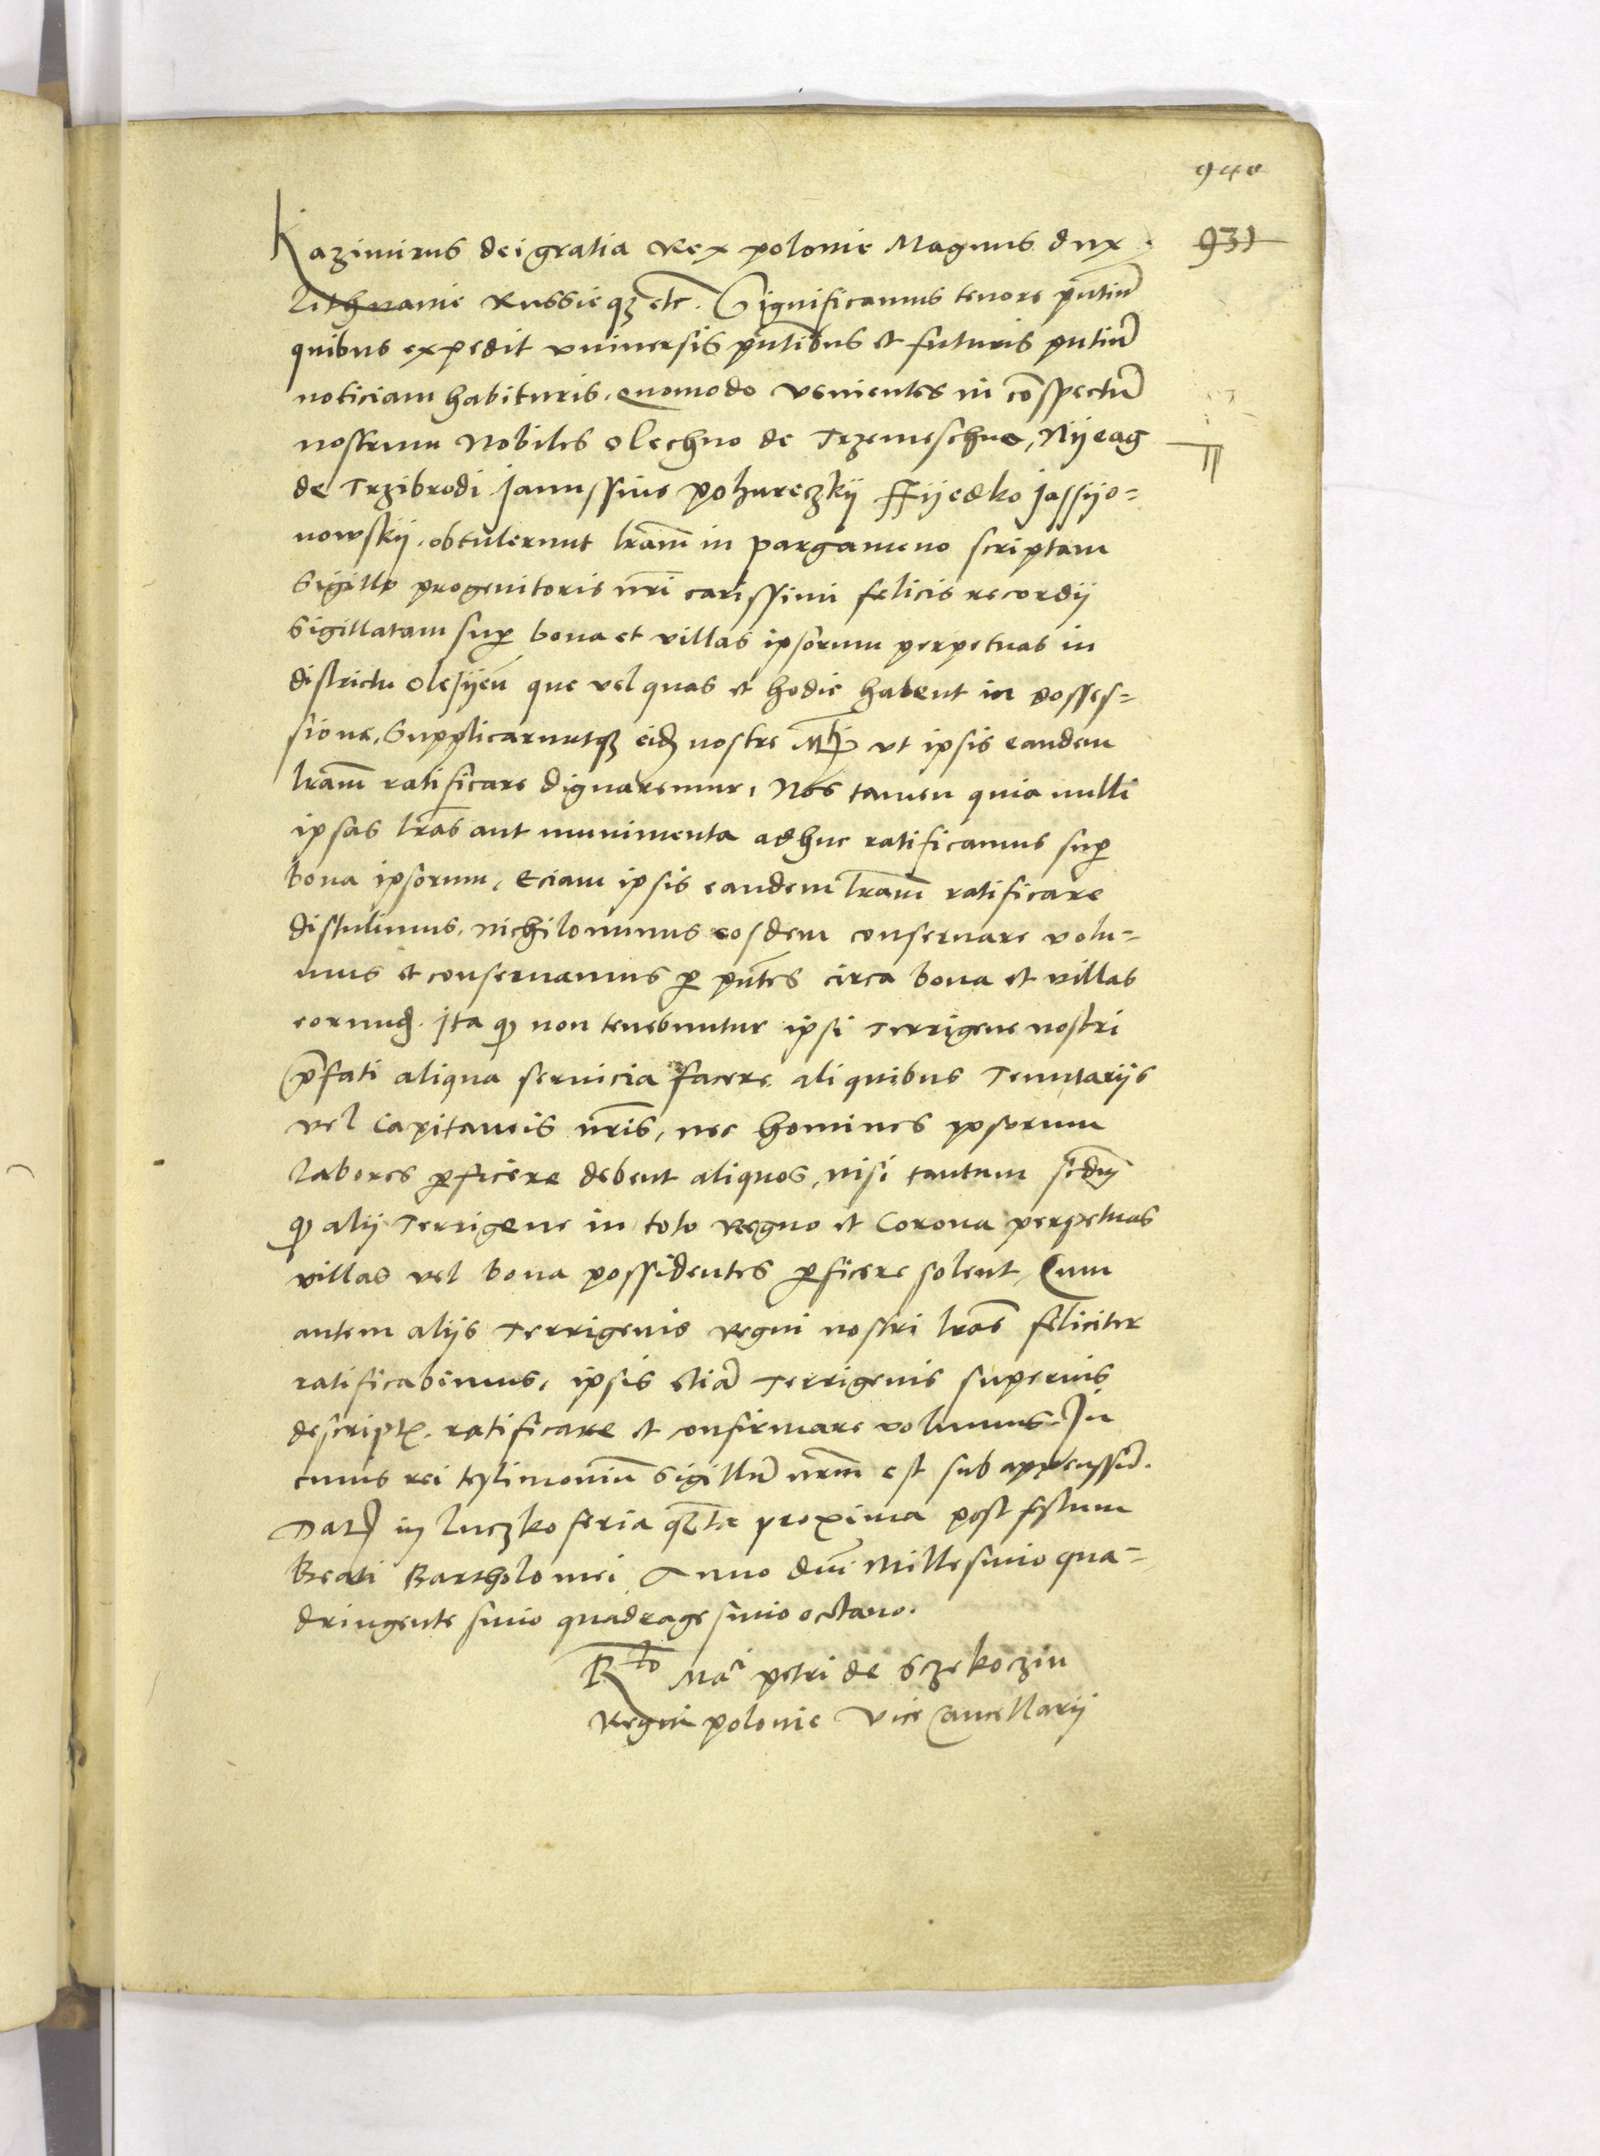 940
931
Kazimirus dei gratia Rex polonie Magnus dux
Lithvanie Russieqz etc. Significamus tenore pntiu̅
quibus expedit vniuersis pn̅tibus et futuris pntiu̅
noticiam habituris, quomodo venientes in co̅spectu̅
nostrum Nobiles Olechno de Trzemeschno, Nyeag
de Trzibrodi Janussius pohureczkij ffijedko Jassijo=
nowskij, obtulerunt lr̅am in pargameno scriptam
Sigillo progenitoris nr̅i carissimi felicis recordij
Sigillatam sup̅ bona et villas ipsorum perpetuas in
districtu Olesijen̅ que vel quas et hodie habent in posses=
sione, Supplicaruntqz eid nostre Mti vt ipsis eandem
lr̅am ratificare dignaremur, Nos tamen quia nulli
ipsas lr̅as aut munimenta adhuc ratificamus sup̅
bona ipsorum, Eciam ipsis eandem lr̅am ratificare
distulimus, Nichilominus eosdem conseruare volu=
mus et conseruamus p̱ pn̅tes circa bona et villas
eorund. Ita q̱ non tenebuntur ipsi Terrigene nostri
p̅fati aliqua seruicia facere aliquibus Tenutarijs
vel Capitaneis nr̅is, nec homines ipsorum
labores p̱ficere debent aliquos, nisi tantum scd̅m
q̱ alij Terrigene in toto Regno et Corona perpetuas
villas vel bona possidentes p̱ficere solent, Cum
autem alijs Terrigenis Regni nostri lr̅as feliciter
ratificabimus, ipsis etia̅ Terrigenis superius
descript. ratificare et confirmare volumus. In
cuius rei testimoniu̅ Sigillu̅ nr̅m est sub appenssu̅.
Dat in luczko feria proxima post festum
Beati Bartholomei Anno dn̅i Millesimo qua=
dringentesimo quadragesimo octauo.
Rto Mci petri de Sczekoczin
Regni polonie Vice Cancellarij